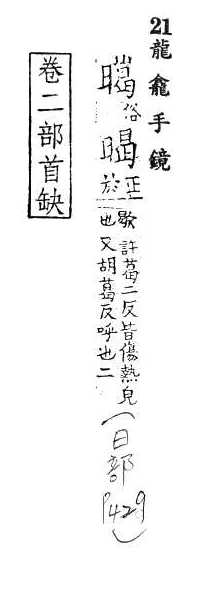 21龍龕手鏡
俗暍正於歇許葛二反皆傷熱皃
也又胡葛反呼也二
(日部
P429)
卷二部首缺